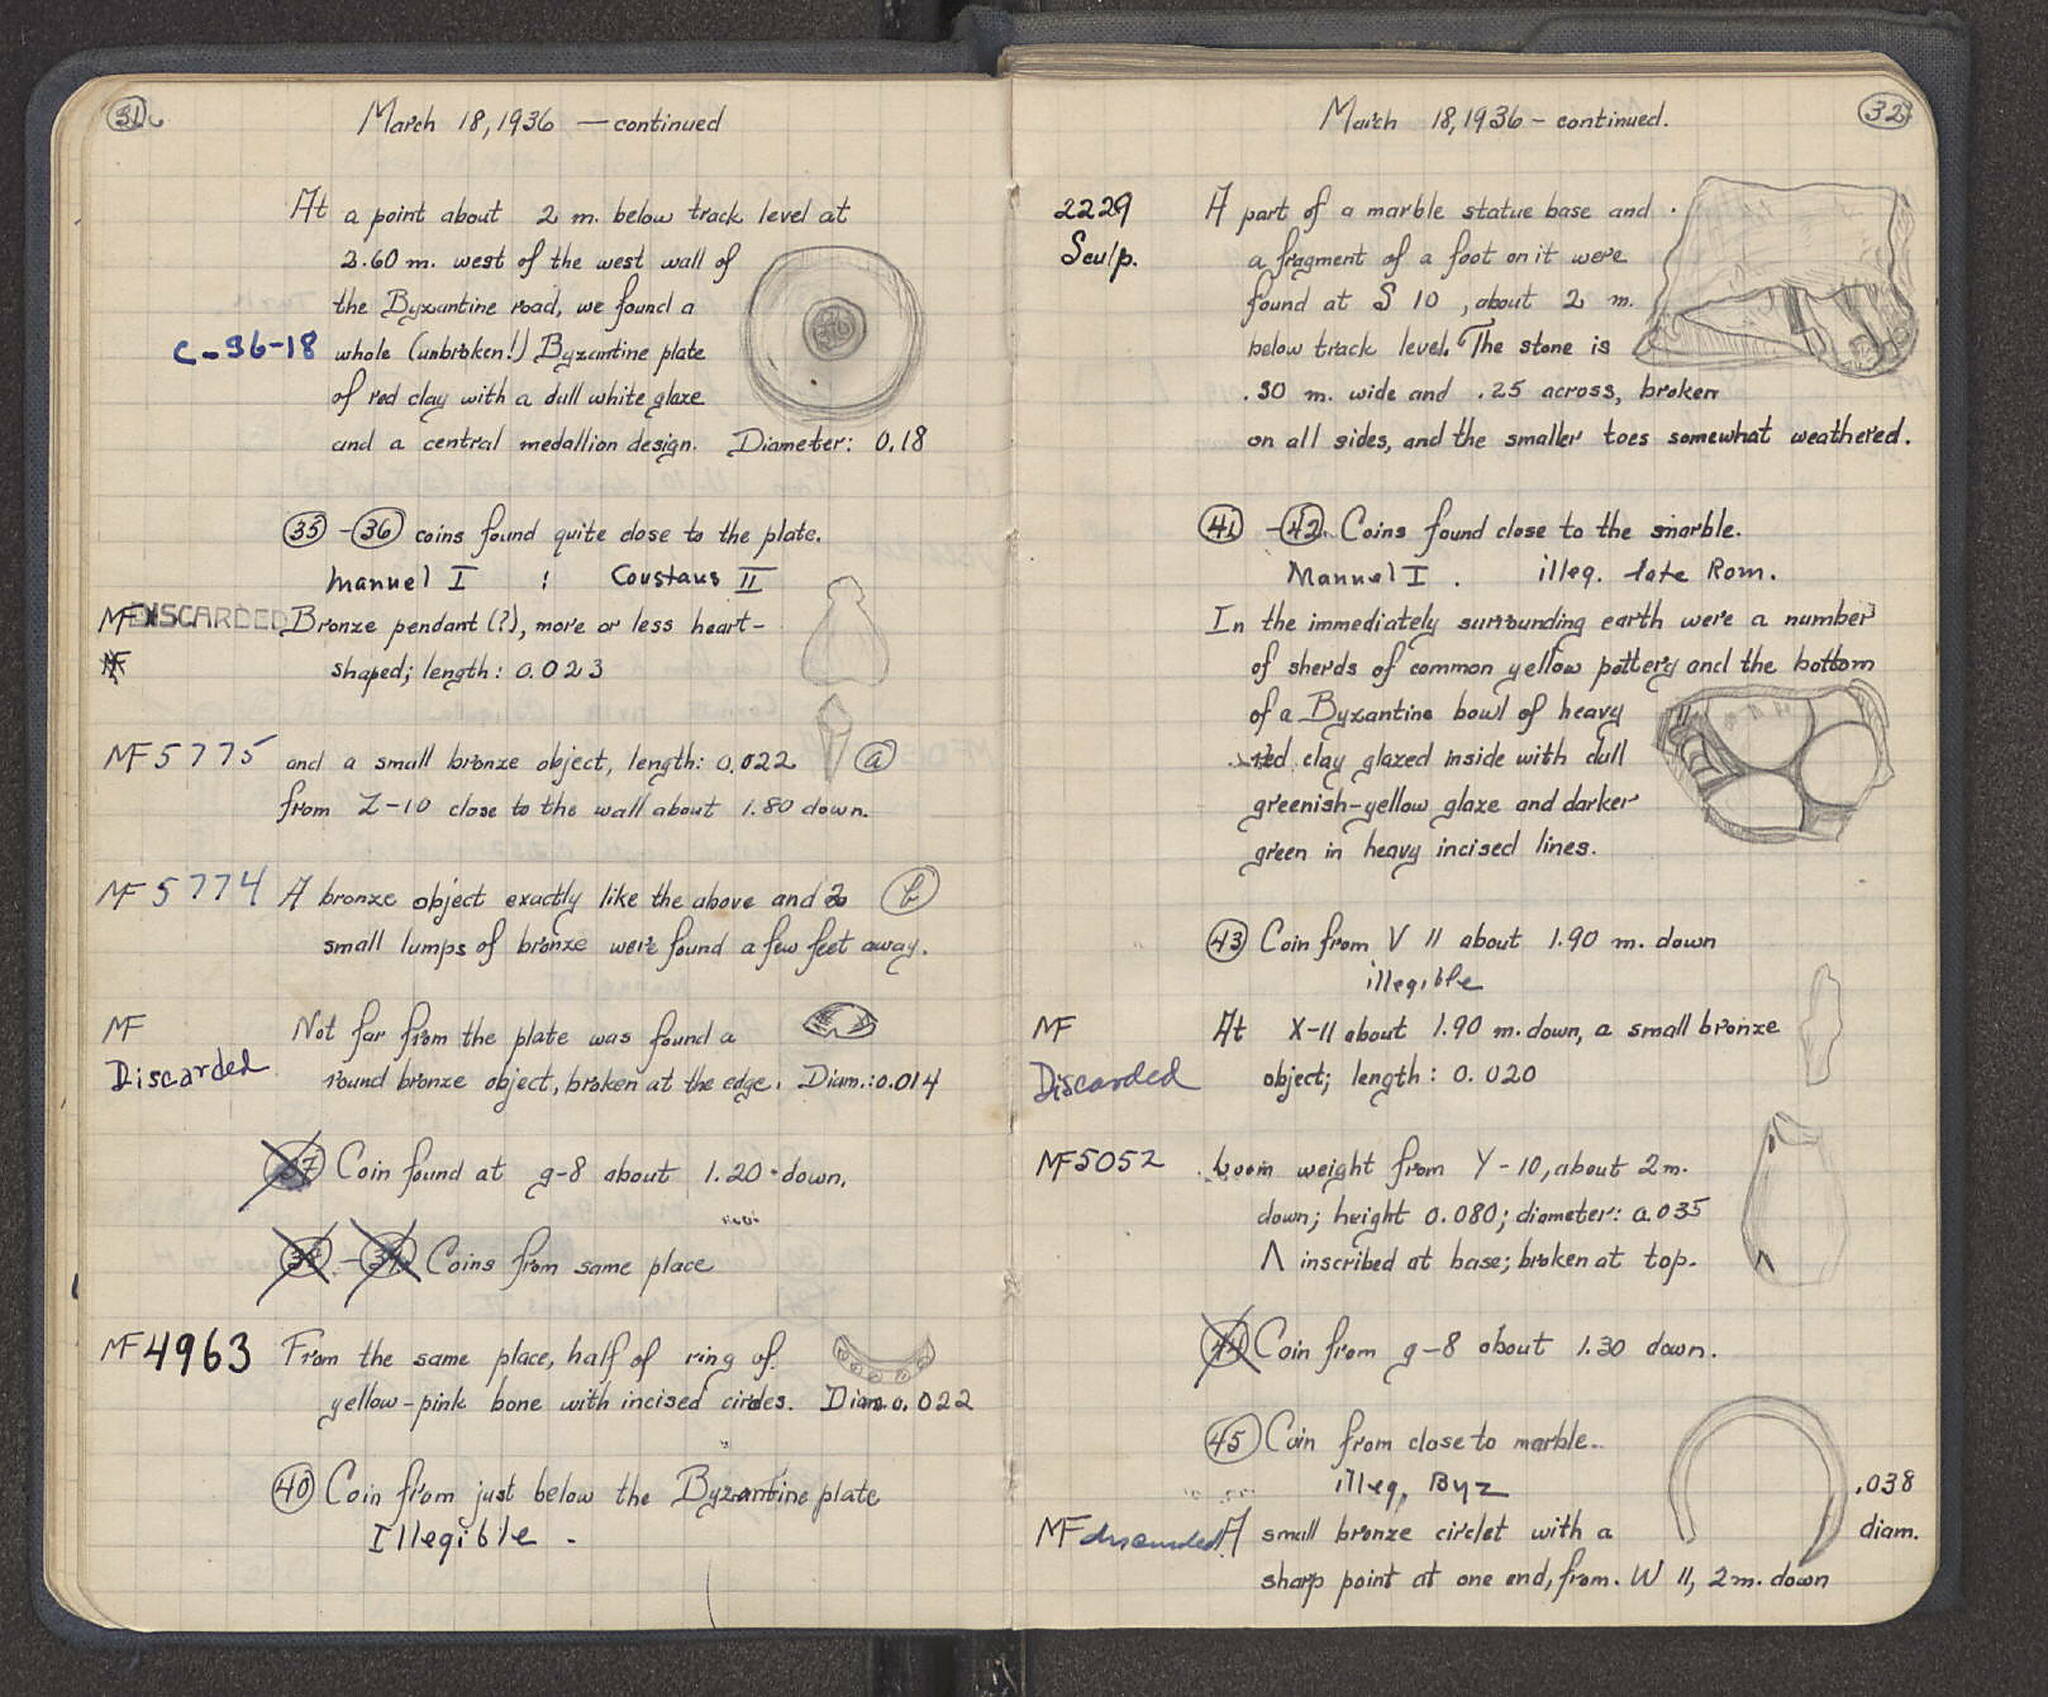 31
March 18, 1936 — continued
At a point about 2 m. below track level at
3.60 m. west of the west wall of
the Byzantine road, we found a
C-36-18 whole (unbroken!) Byzantine plate
of red clay with a dull white glaze
and a central medallion design. Diameter: 0.18
35 - 36 coins found quite close to the plate.
Manuel I : Constans II
MF DISCARDED Bronze pendant (?), more or less heart-
shaped; length: 0.023
MF 5775 and a small bronze object, length: 0.022 a
from Z-10 close to the wall about 1.80 down.
MF 5774 A bronze object exactly like the above and 2 b
small lumps of bronze were found a few feet away.
MF Not far from the plate was found a
Discarded round bronze object, broken at the edge. Diam.: 0.014
37 Coin found at g-8 about 1.20 down.
38 - 39 Coins from same place
MF 4963 From the same place, half of ring of
yellow-pink bone with incised circles. Diam. 0.022
40 Coin from just below the Byzantine plate
Illegible -
32
March 18, 1936 - continued.
2229 A part of a marble statue base and
Sculp. a fragment of a foot on it were
found at S 10, about 2 m.
below track level. The stone is
.30 m. wide and .25 across, broken
on all sides, and the smaller toes somewhat weathered.
41 - 42. Coins found close to the marble.
Manuel I . illeg. late Rom.
In the immediately surrounding earth were a number
of sherds of common yellow pottery and the bottom
of a Byzantine bowl of heavy
red clay glazed inside with dull
greenish-yellow glaze and darker
green in heavy incised lines.
43 Coin from V 11 about 1.90 m. down
illegible
MF At X-11 about 1.90 m. down, a small bronze
Discarded object; length: 0.020
MF5052 Loom weight from Y-10, about 2 m.
down; height 0.080; diameter: 0.035
Λ inscribed at base; broken at top.
Λ
44 Coin from g-8 about 1.30 down.
45 Coin from close to marble.
illeg. Byz
.038
diam.
MF discarded A small bronze circlet with a
sharp point at one end, from W 11, 2 m. down